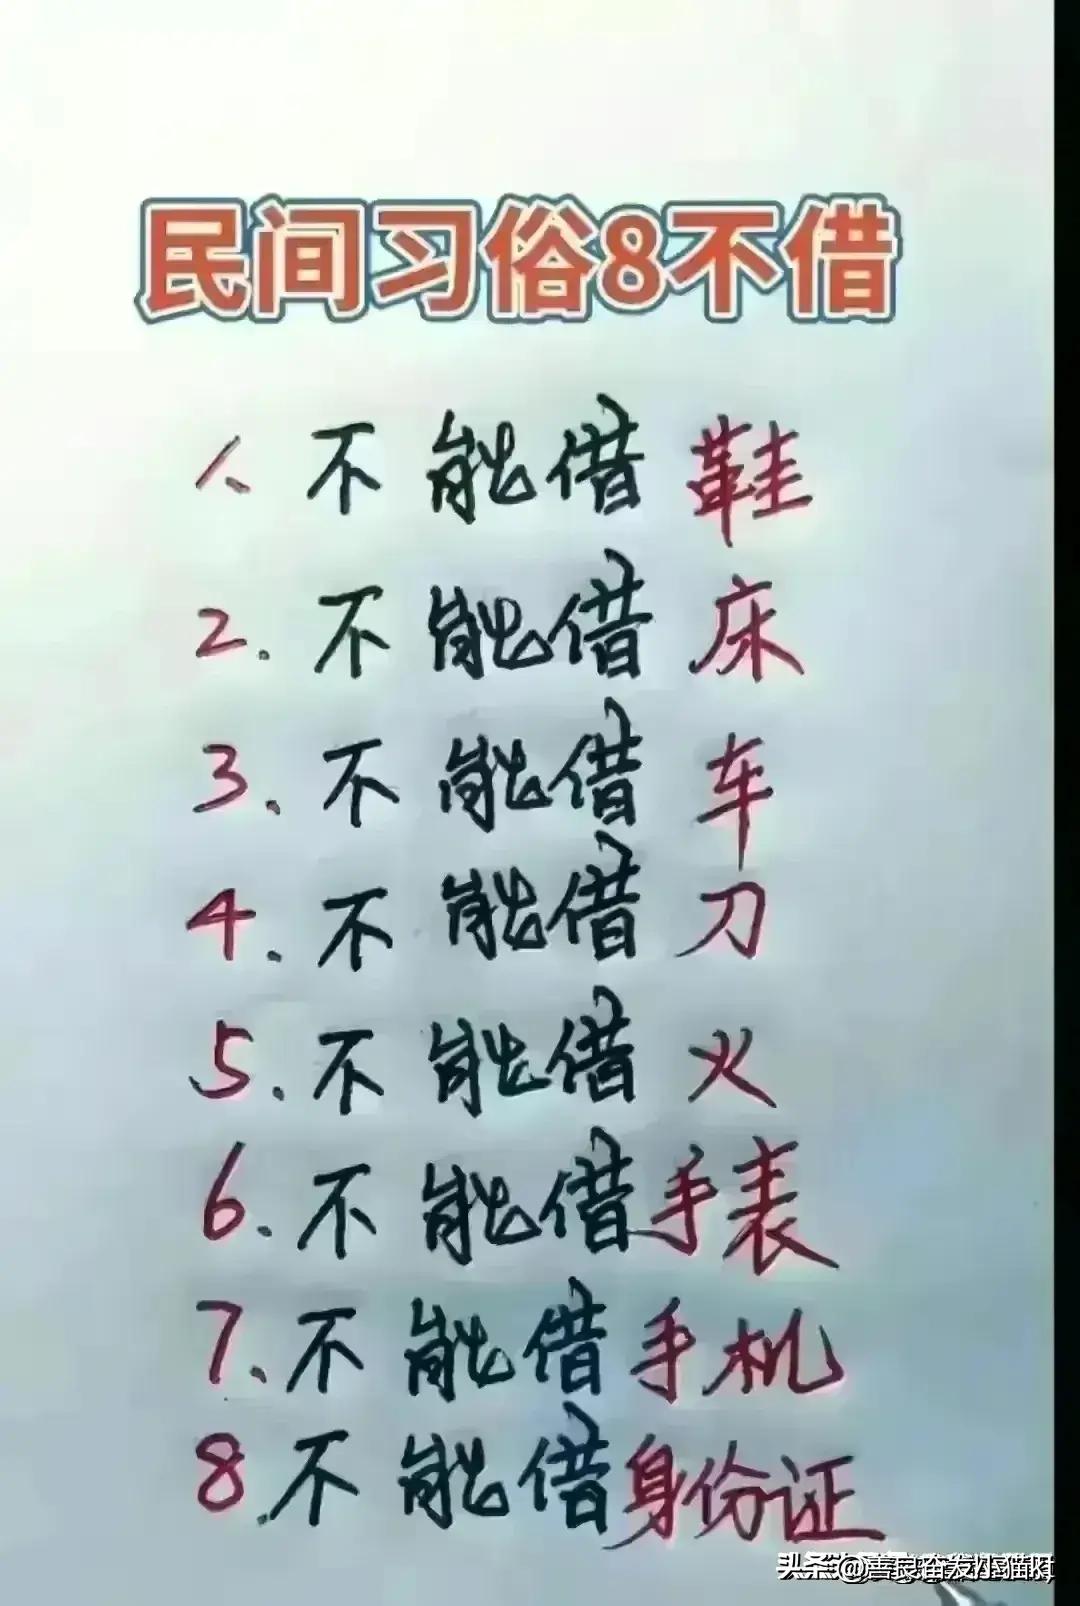 民间习俗8不借
1、不能借鞋
2.不能借床
3.不能借车
4.不能借刀
5.不能借火
6.不能借手表
7.不能借手机
8.不能借身份证
头条@善良奋发小猫